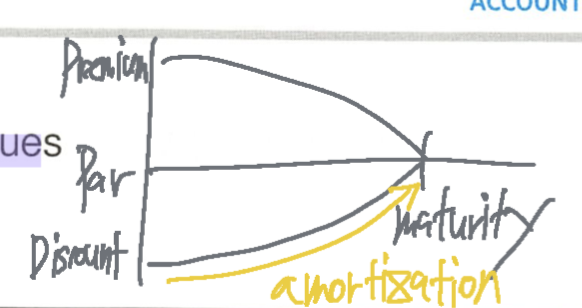 ACCOUNT
Premium
ues
Par
Discount
maturity
amortization